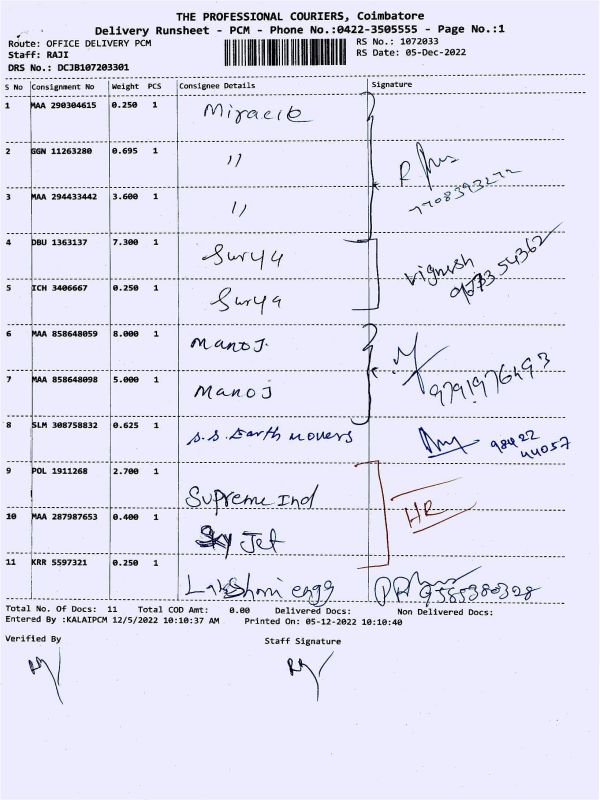 THE PROFESSIONAL COURIERS, Coimbatore
Delivery Runsheet - PCM - Phone No.:0422-3505555 - Page No.:1
Route: OFFICE DELIVERY PCM
RS No.: 1072033
Staff: RAJI
RS Date: 05-Dec-2022
DRS No.: DCJB107203301
S No Consignment No Weight PCS Consignee Details Signature
1 MAA 290304615 0.250 1 Miracle
2 GGN 11263280 0.695 1 "
3 MAA 294433442 3.600 1 "
4 DBU 1363137 7.300 1 Surya
Vignesh
5 ICH 3406667 0.250 1 Surya
6 MAA 858648059 8.000 1 Manoj.
9791976493
7 MAA 858648098 5.000 1 Manoj
8 SLM 308758832 0.625 1 S.S. Earth movers 98422
44057
9 POL 1911268 2.700 1 Supreme Ind
HR
10 MAA 287987653 0.400 1 Sky Jet
11 KRR 5597321 0.250 1 Lakshmi engg 9585380328
Total No. Of Docs: 11 Total COD Amt: 0.00 Delivered Docs: Non Delivered Docs:
Entered By :KALAIPCM 12/5/2022 10:10:37 AM Printed On: 05-12-2022 10:10:40
Verified By Staff Signature